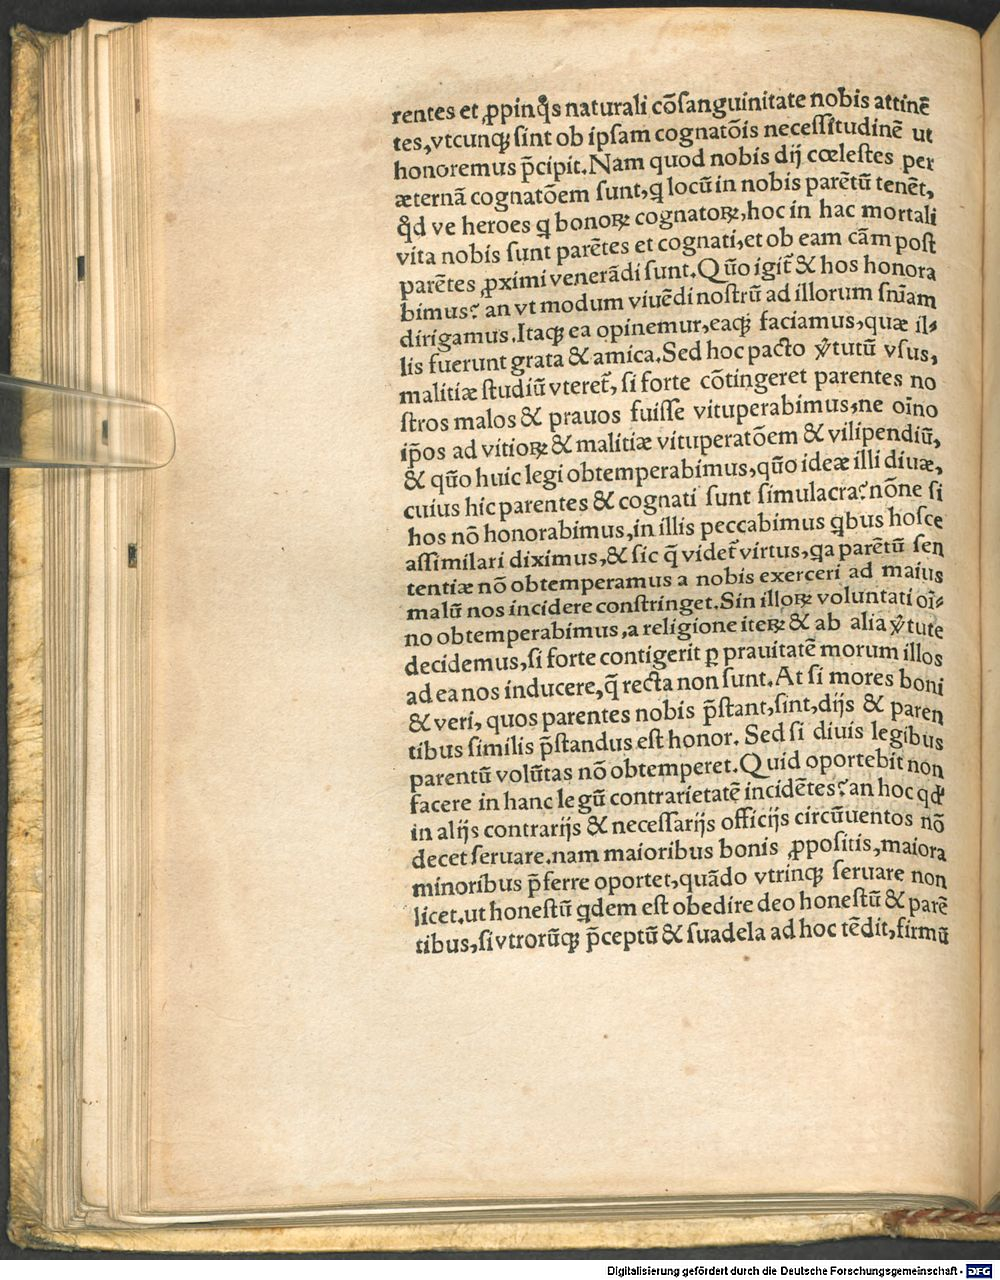 rentes et ꝓpinq̊s naturali cõſanguinitate nobis attinẽ
tes,vtcunqꝫ ſint ob ipſam cognatõis neceſſitudinẽ ut
honoremus p̃cipit.Nam quod nobis dij cœleſtes per
æternã cognatõem ſunt,ꝗ locũ in nobis parẽtũ tenẽt,
q̊d ve heroes ꝗ bonoꝝ cognatoꝝ,hoc in hac mortali
vita nobis ſunt parẽtes et cognati,et ob eam cãm poſt
parẽtes ꝓximi venerãdi ſunt.Q ũo igit̃ & hos honora
bimus? an vt modum viuẽdi noſtrũ ad illorum ſn̄iam
dirigamus.Itaqꝫ ea opinemur,eaqꝫ faciamus,quæ il⸗
lis fuerunt grata & amica.Sed hoc pacto v̓tutũ vſus,
malitiæ ſtudiũ vteret̃, ſi forte cõtingeret parentes no
ſtros malos & prauos fuiſſe vituperabimus,ne oīno
ip̃os ad vitioꝝ & malitiæ vituperatõem & vilipendiũ,
& qũo huic legi obtemperabimus,qũo ideæ illi diuæ,
cuius hic parentes & cognati ſunt ſimulacra? nõne ſi
hos nõ honorabimus,in illis peccabimus ꝗbus hoſce
aſſimilari diximus,& ſic q̃ videt̃ virtus,ꝗa parẽtũ ſen
tentiæ nõ obtemperamus a nobis exerceri ad maius
malũ nos incidere conſtringet.Sin illoꝝ voluntati oī⸗
no obtemperabimus,a religione iteꝝ & ab alia v̓tute
decidemus,ſi forte contigerit ꝑ prauitatẽ morum illos
ad ea nos inducere,q̃ recta non ſunt.At ſi mores boni
& veri, quos parentes nobis p̃ſtant,ſint,dijs & paren
tibus ſimilis p̃ſtandus eſt honor. Sed ſi diuis legibus
parentũ volũtas nõ obtemperet.Quid oportebit non
facere in hanc legũ contrarietatẽ incidẽtes? an hoc qđ
in alijs contrarijs & neceſſarijs officijs circũuentos nõ
decet ſeruare.nam maioribus bonis ꝓpoſitis,maiora
minoribus p̃ferre oportet,quãdo vtrinqꝫ ſeruare non
licet.ut honeſtũ ꝗdem eſt obedire deo honeſtũ & parẽ
tibus,ſi vtrorũqꝫ p̃ceptũ & ſuadela ad hoc tẽdit,firmũ
Digitalisierung gefördert durch die Deutsche Forschungsgemeinschaft - DFG